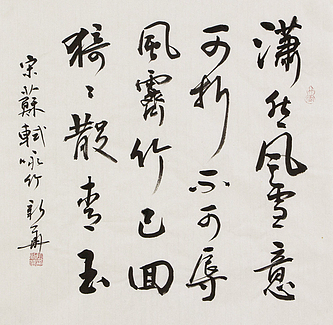 瀟然風雪意
可折不可辱
風霽竹已回
猗猗散青玉
宋蘇軾咏竹